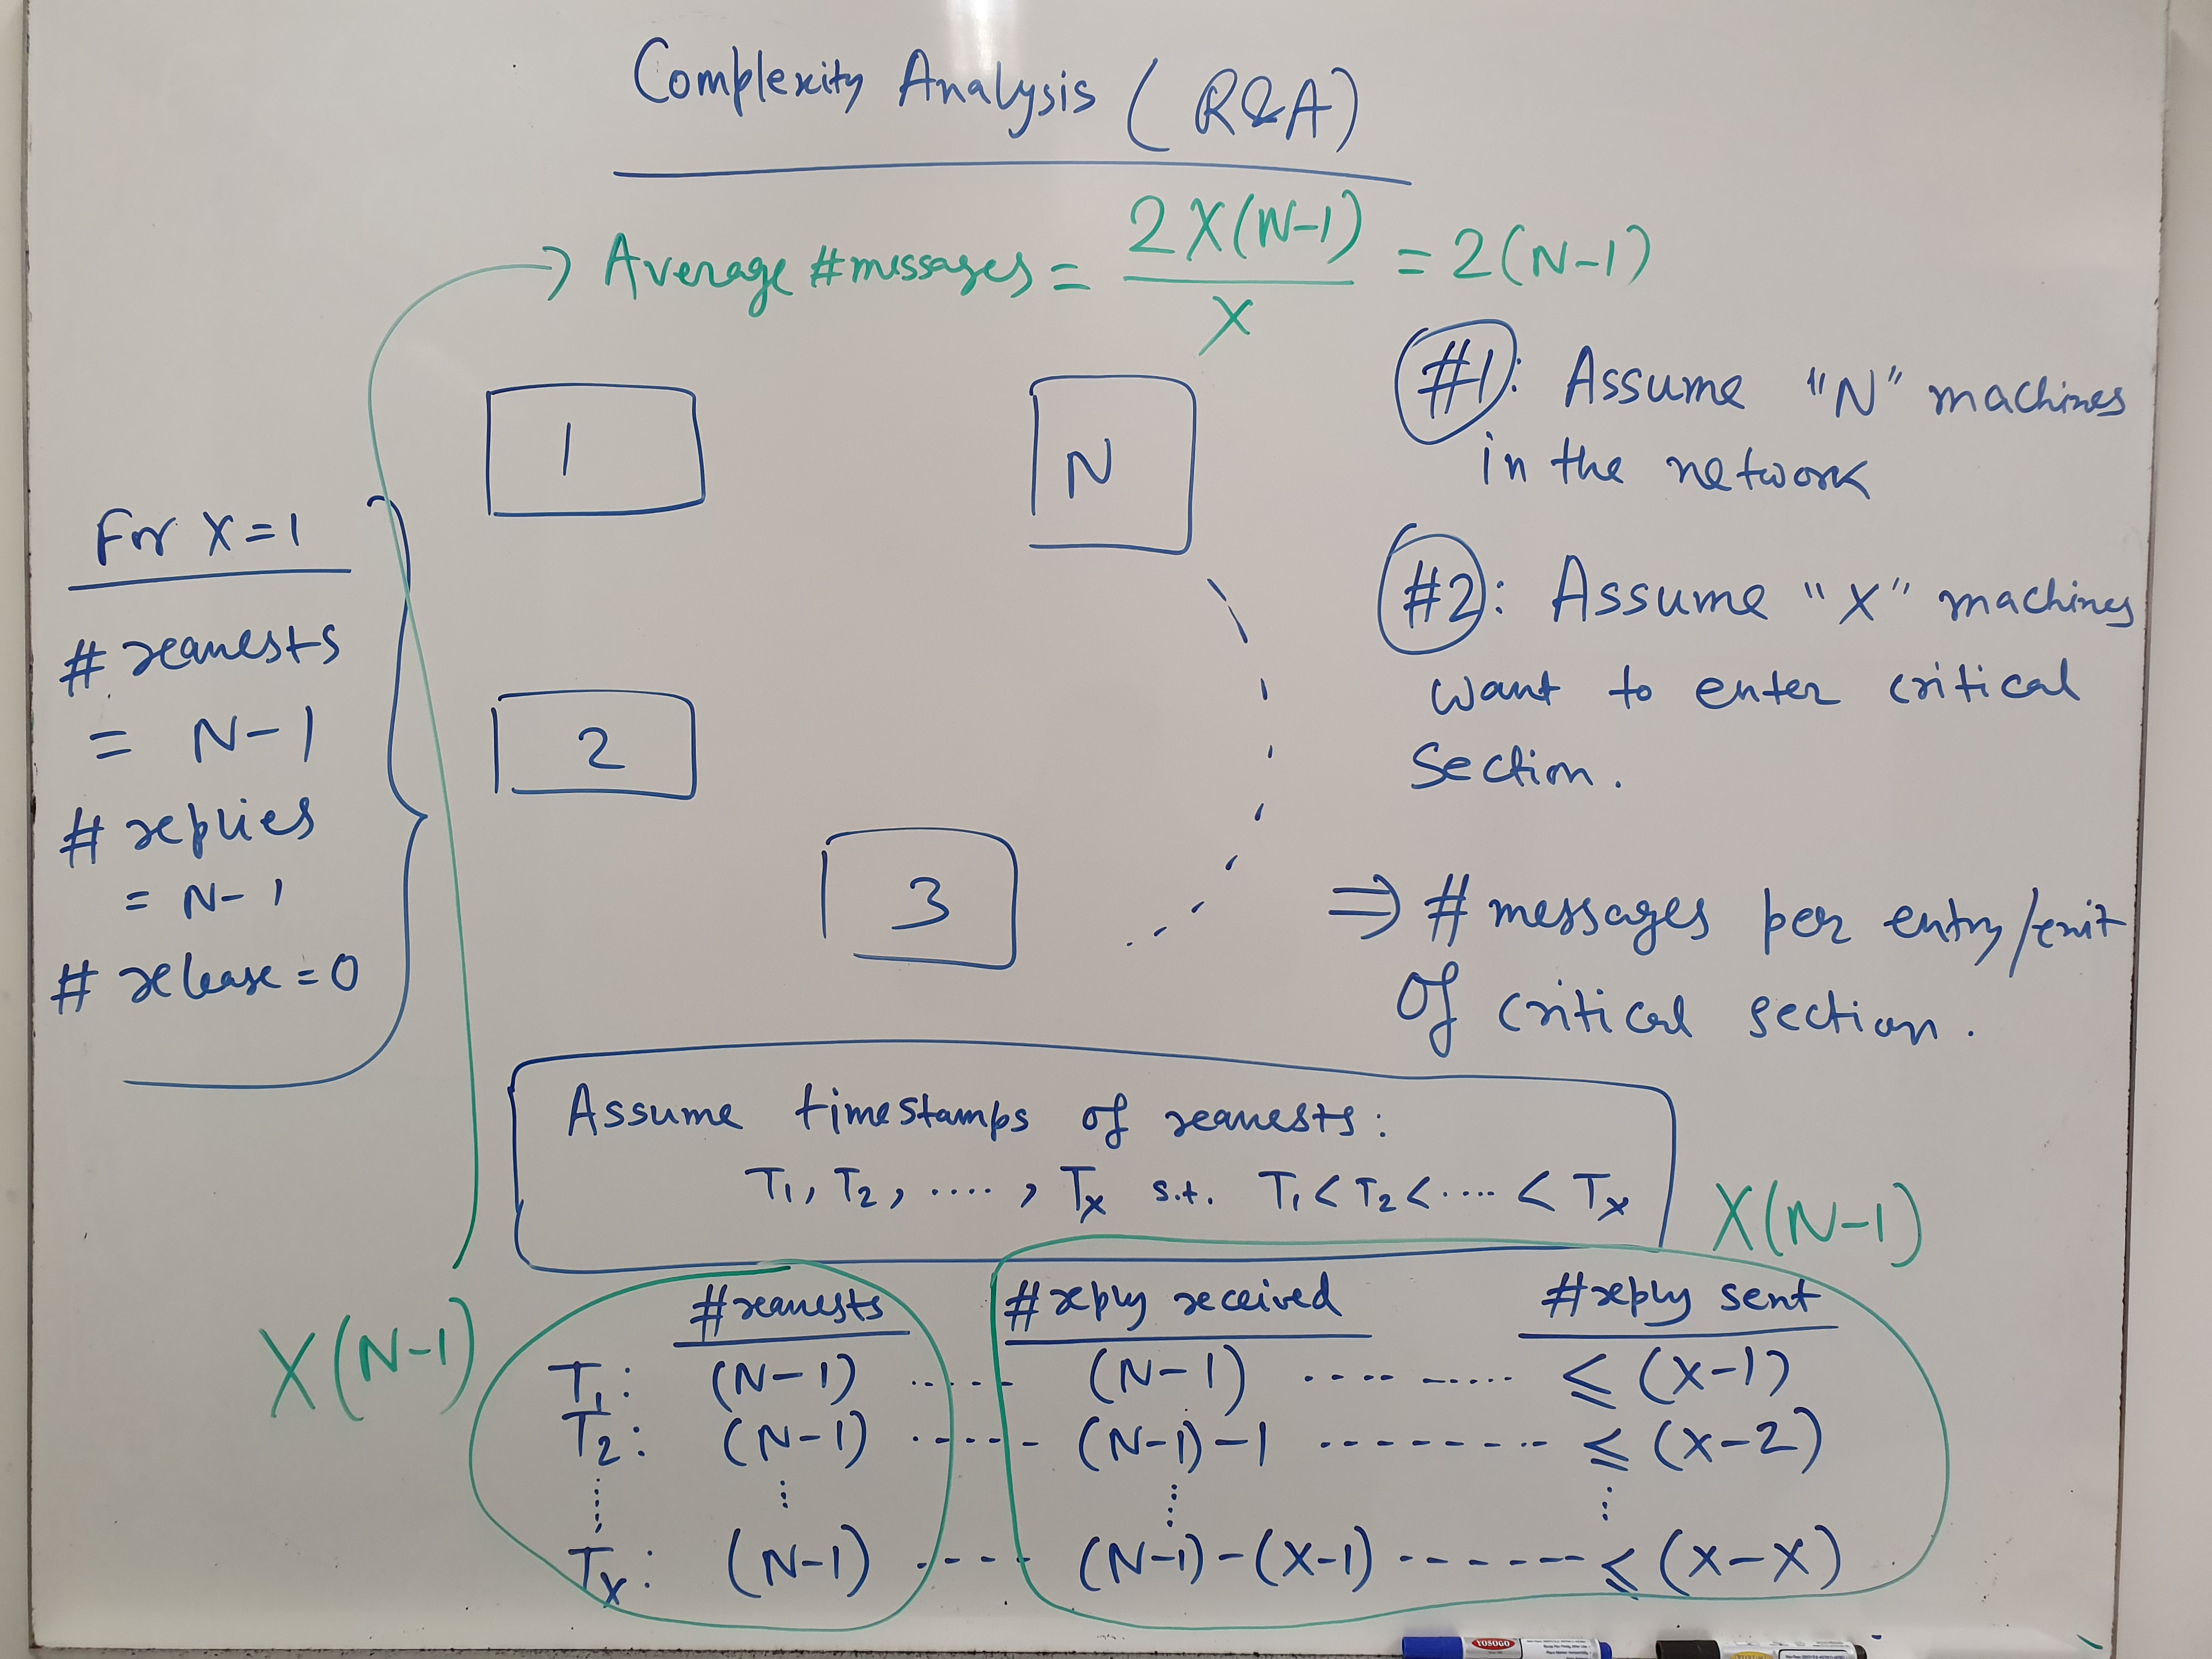 Complexity Analysis (R&A)
→ Average #messages = 2X(N-1) / X = 2(N-1)
1
N
2
3
#1: Assume "N" machines
in the network
#2: Assume "X" machines
want to enter critical
section.
⇒ # messages per entry/exit
of critical section.
For X=1
# requests
= N-1
# replies
= N-1
# release = 0
Assume timestamps of requests:
T₁, T₂, ...., Tₓ s.t. T₁ < T₂ < .... < Tₓ
X(N-1)
X(N-1)
#requests #reply received #reply sent
T₁: (N-1) ...... (N-1) .... ...... ≤ (X-1)
T₂: (N-1) ----- (N-1)-1 -------- ≤ (X-2)
⋮ ⋮ ⋮ ⋮
Tₓ: (N-1) ---- (N-1)-(X-1) ------- ≤ (X-X)
YOSOGO